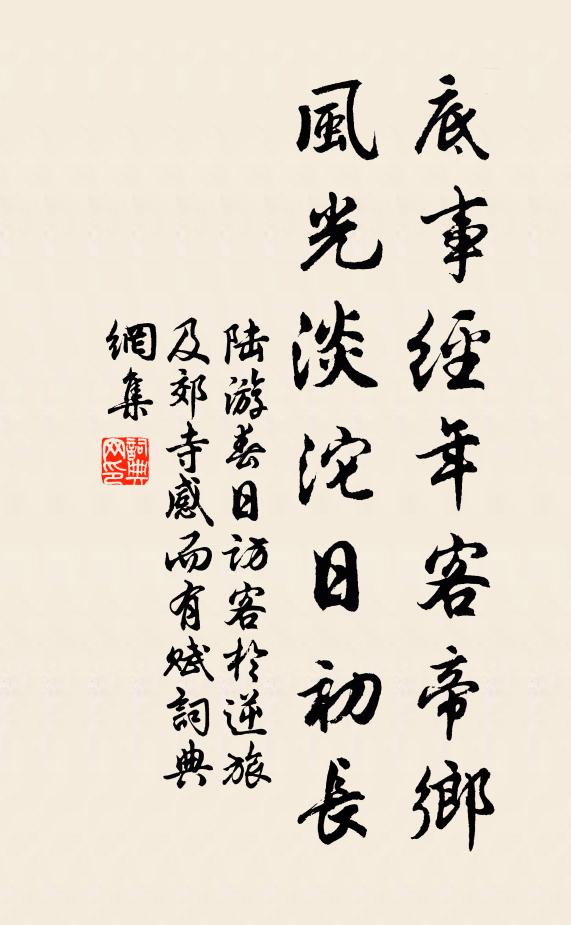 底事經年客帝鄉
風光淡沱日初長
陆游春日访客於逆旅
及郊寺感而有赋詞典
網集
詞典網印